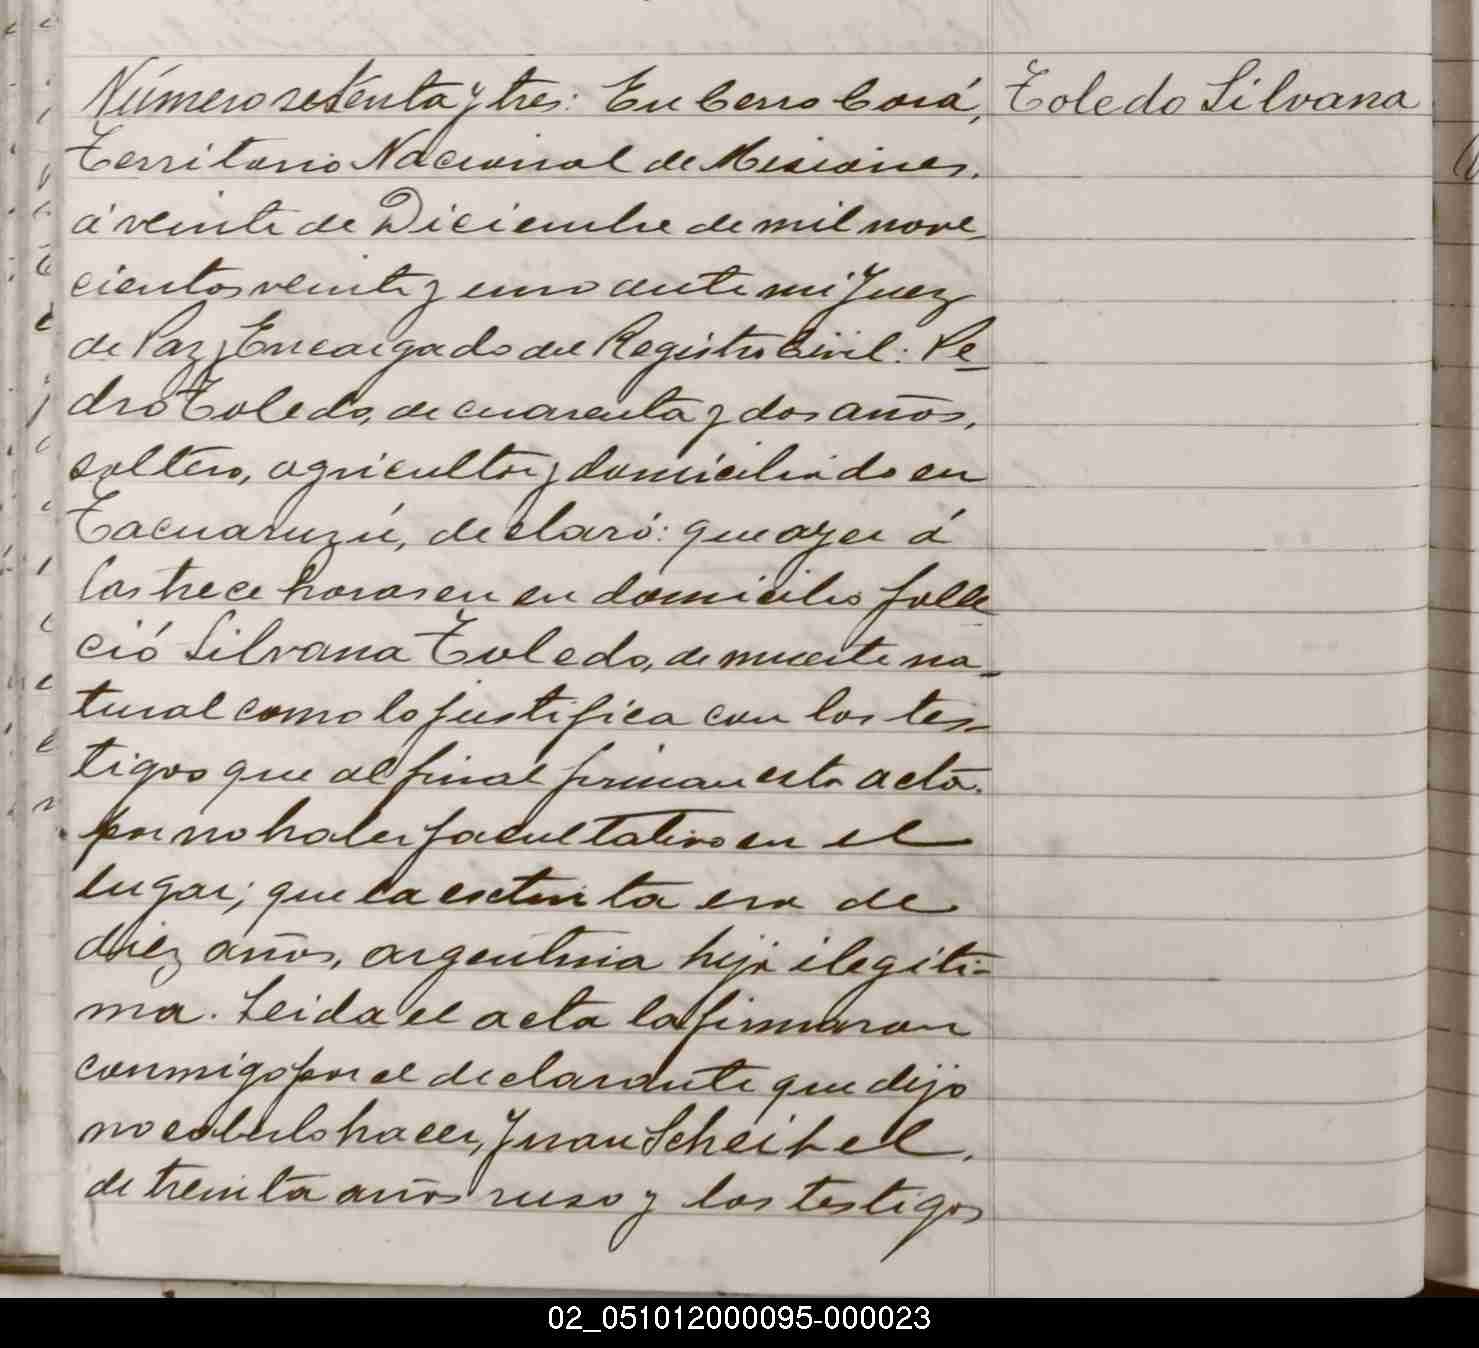 Número setenta y tres: En Cerro Corá,
Toledo Silvana
Territorio Nacional de Misiones,
á veinte de Diciembre de mil nove
cientos veinte y uno ante mi Juez
de Paz y Encargado del Registro Civil: Pe-
dro Toledo, de cuarenta y dos años,
soltero, agricultor y domiciliado en
Tacuaruzú, declaró: que ayer á
las trece horas en su domicilio falle
ció Silvana Toledo, de muerte na-
tural como lo justifica con los tes-
tigos que al final firman esta acta.
por no haber facultativo en el
lugar; que la extinta era de
diez años, argentina hija ilegíti-
ma. Leida el acta la firmaron
conmigo por el declarante que dijo
no saberlo hacer, Juan Scheibel,
de treinta años ruso y los testigos
02_051012000095-000023